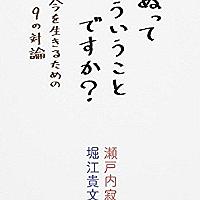 ぬって
ういうこと
ですか?
今を生きるための
9の対論
瀬戸内寂
堀江貴文